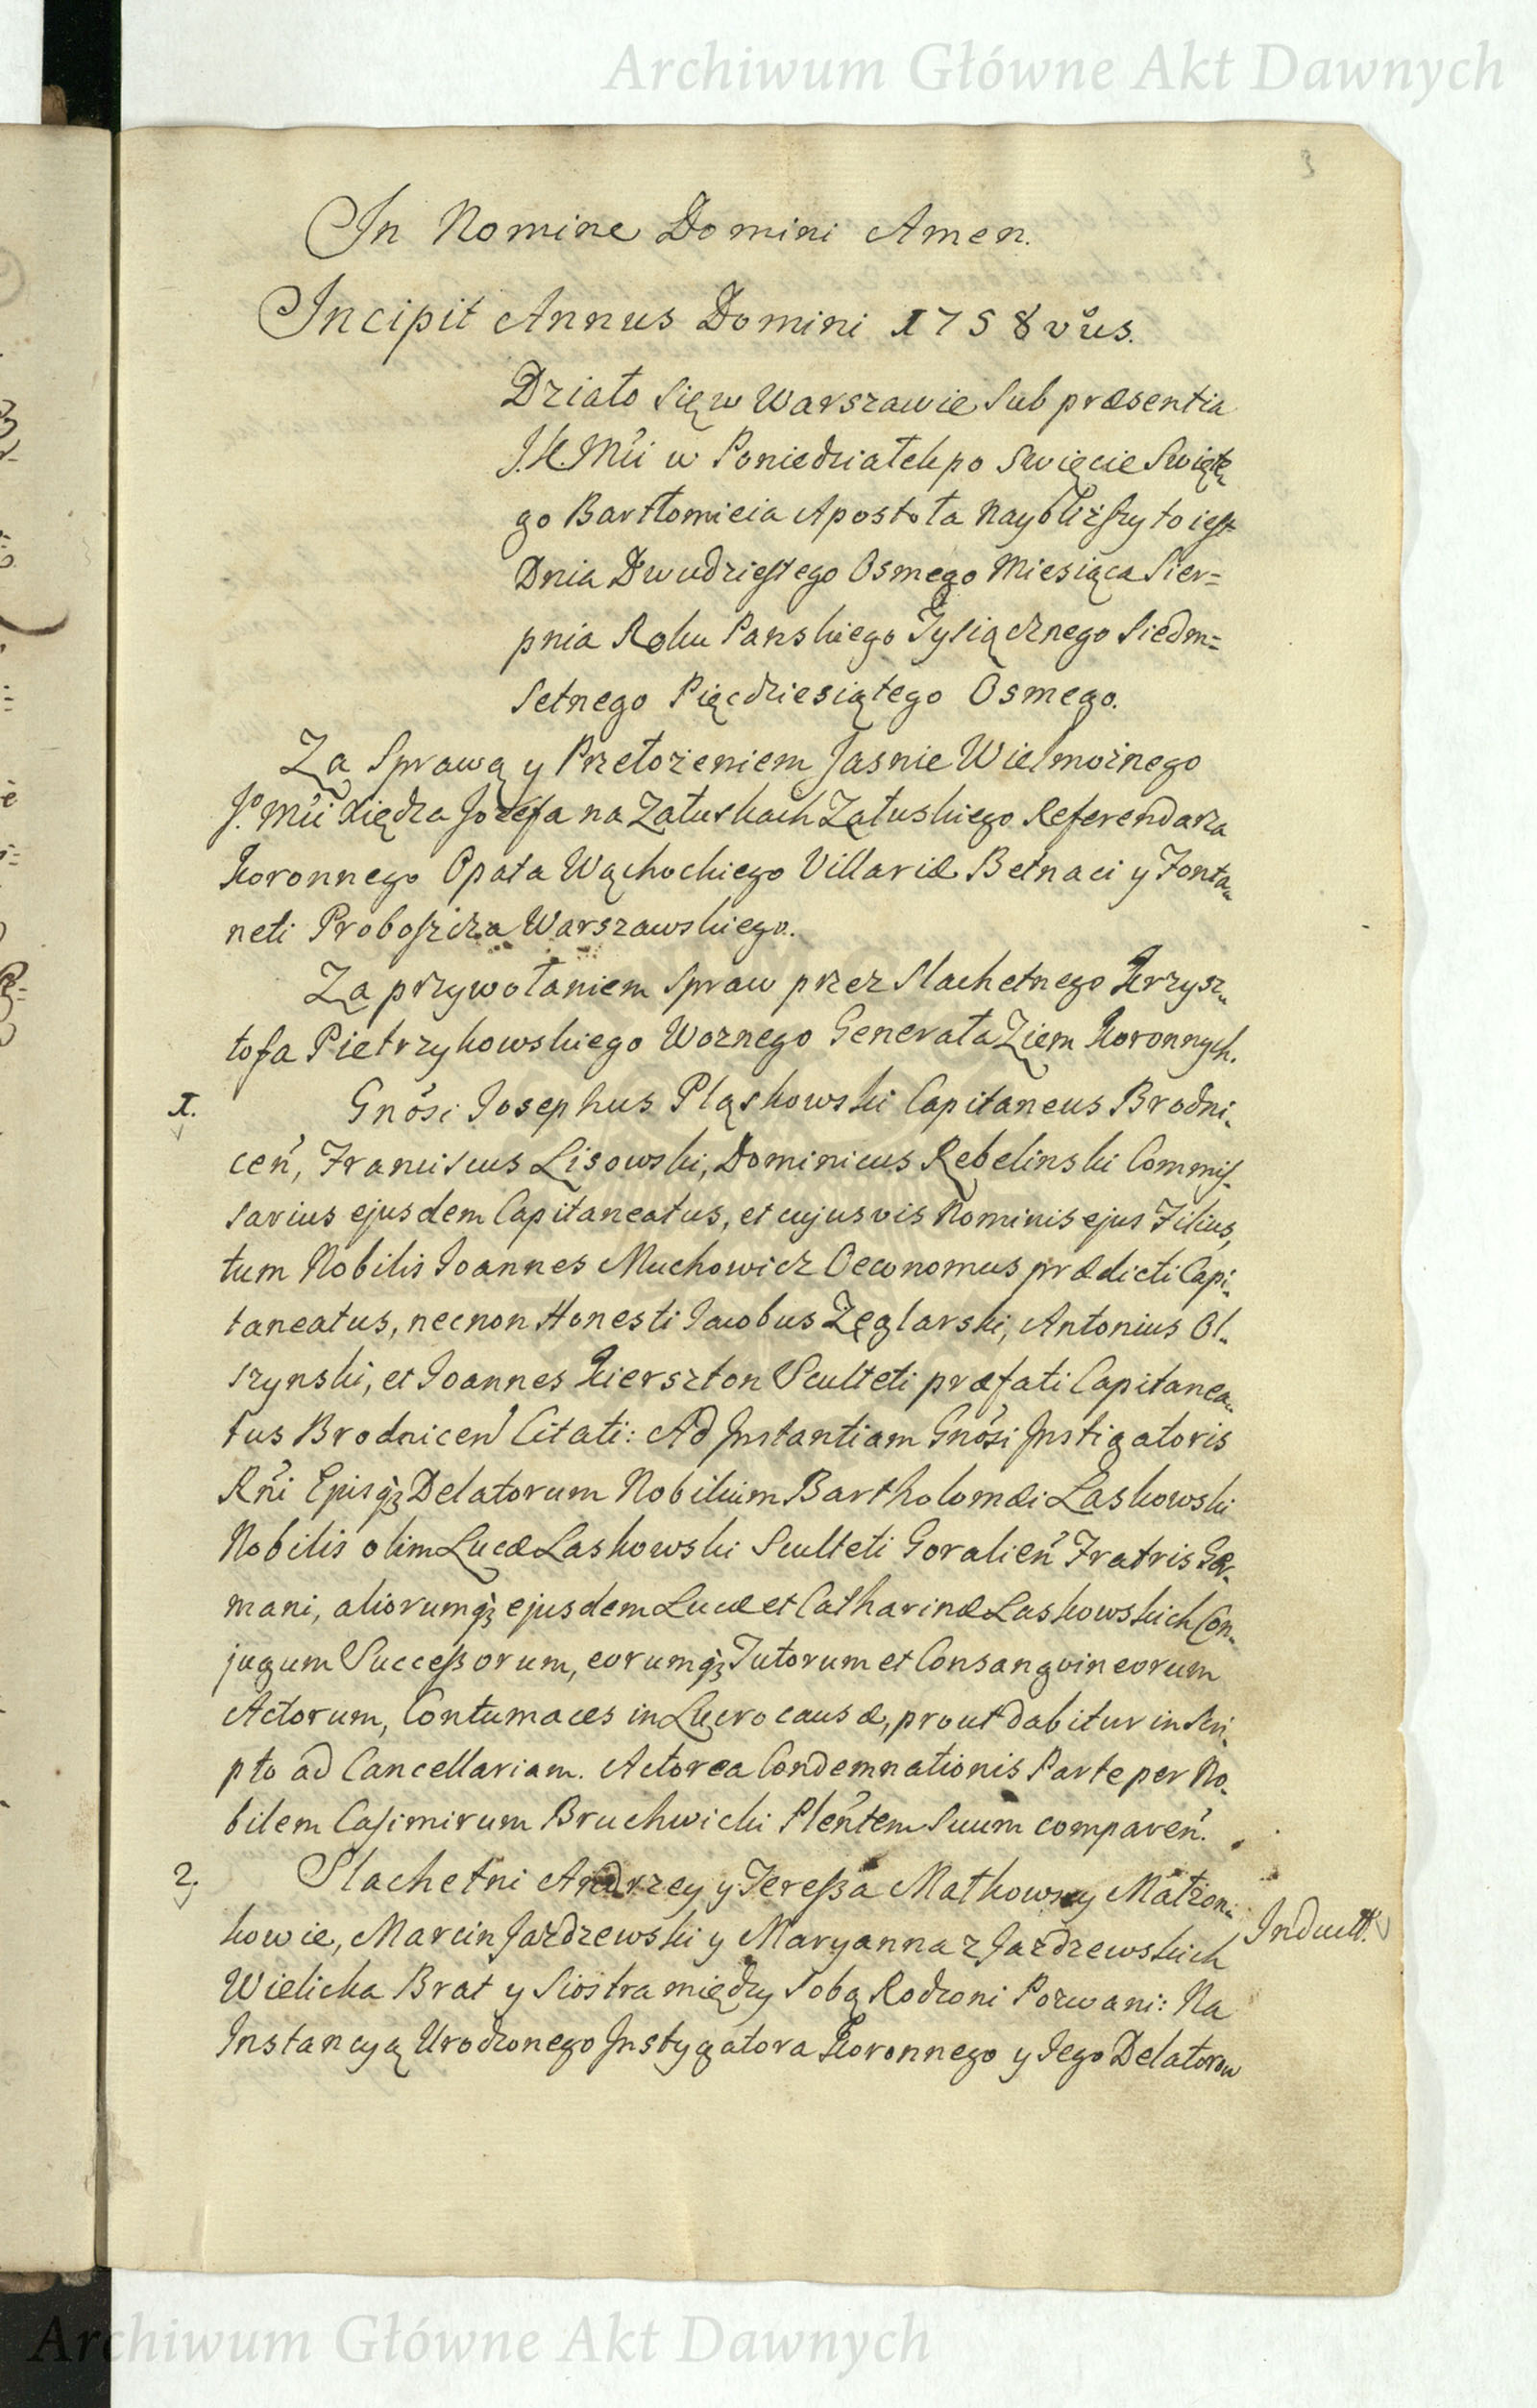 Archiwum Główne Akt Dawnych
3
In Nomine Domini Amen.
Incipit Annus Domini 1758vus.
Działo się w Warszawie Sub præsentia
J.K.Mći w Poniedziałek po Swięcie Swięte
go Bartłomieia Apostoła Naybliższy to iest
Dnia Dwudziestego Osmego Miesiąca Sier=
pnia Roku Panskiego Tysiącznego Siedm=
setnego Pięcdziesiątego Osmego.
Za Sprawą y Przełożeniem Jasnie Wielmożnego
Jº.Mći Xiędza Jozefa na Załuskach Załuskiego Referendarza
Koronnego Opata Wąchockiego Villariæ Betnaci y Fonta-
neti Proboszcza Warszawskiego.
Za przywołaniem Spraw przez Slachetnego Krzysz-
tofa Pietrzykowskiego Woznego Generała Ziem Koronnych.
1. Gnosi Josephus Pląskowski Capitaneus Brodni-
cen, Franciscus Lisowski, Dominicus Rębelinski Commis-
sarius ejusdem Capitaneatus, et cujusvis Nominis ejus Filius,
tum Nobilis Joannes Muchowicz Oeconomus prædicti Capi-
taneatus, necnon Honesti Jacobus Zęglarski, Antonius Ol-
szynski, et Joannes Kierszton Sculteti præfati Capitanea-
tus Brodnicen Citati: Ad Instantiam Gnosi Instigatoris
Rni Ejusqz Delatorum Nobilium Bartholomæi Laskowski
Nobilis olim Lucæ Laskowski Sculteti Goralien Fratris Ger-
mani, aliorumqz ejusdem Lucæ et Catharinæ Laskowskich Con-
jugum Successorum, eorumqz Tutorum et Consangvineorum
Actorum, Contumaces in Lucro causæ, prout dabitur in Scri-
pto ad Cancellariam. Actorea Condemnationis Parte per No-
bilem Casimirum Bruchwicki Plentem Suum comparen.
2. Slachetni Andrzey y Teressa Matkowscy Małżon-
kowie, Marcin Jazdzewski y Maryanna z Jazdzewskich
Indult.
Wielicka Brat y Siostra między Sobą Rodzoni Pozwani: Na
Instancyą Urodzonego Instygatora Koronnego y Jego Delatorow
Archiwum Główne Akt Dawnych